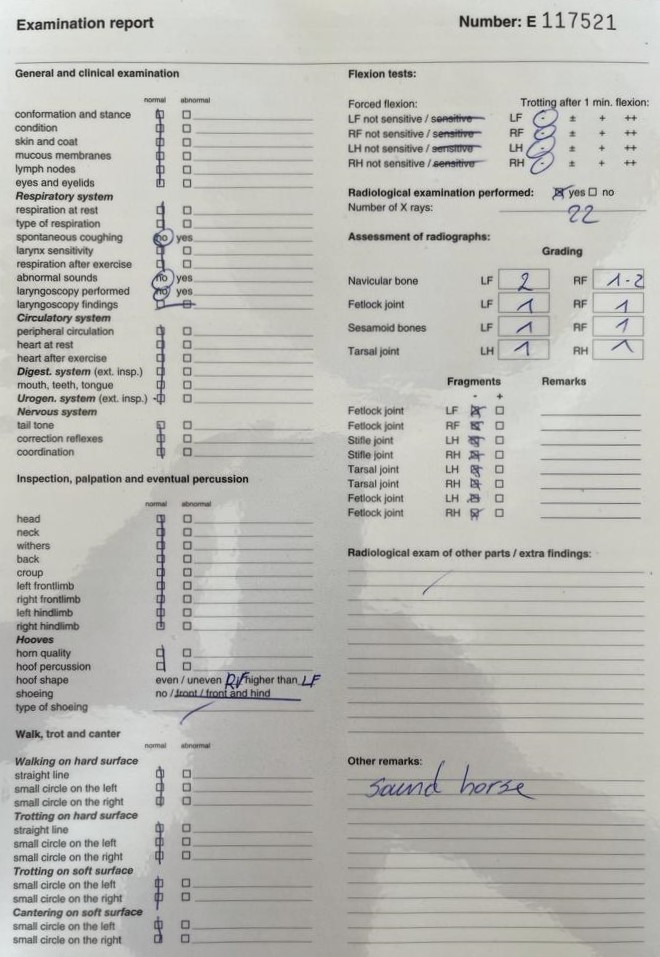 Examination report
Number: E 117521
General and clinical examination
normal abnormal
conformation and stance
condition
skin and coat
mucous membranes
lymph nodes
eyes and eyelids
Respiratory system
respiration at rest
type of respiration
spontaneous coughing no yes
larynx sensitivity
respiration after exercise
abnormal sounds no yes
laryngoscopy performed no yes
laryngoscopy findings
Circulatory system
peripheral circulation
heart at rest
heart after exercise
Digest. system (ext. insp.)
mouth, teeth, tongue
Urogen. system (ext. insp.)
Nervous system
tail tone
correction reflexes
coordination
Inspection, palpation and eventual percussion
normal abnormal
head
neck
withers
back
croup
left frontlimb
right frontlimb
left hindlimb
right hindlimb
Hooves
horn quality
hoof percussion
hoof shape even / uneven RF higher than LF
shoeing no / front / front and hind
type of shoeing
Walk, trot and canter
normal abnormal
Walking on hard surface
straight line
small circle on the left
small circle on the right
Trotting on hard surface
straight line
small circle on the left
small circle on the right
Trotting on soft surface
small circle on the left
small circle on the right
Cantering on soft surface
small circle on the left
small circle on the right
Flexion tests:
Forced flexion: Trotting after 1 min. flexion:
LF not sensitive / sensitive LF - ± + ++
RF not sensitive / sensitive RF - ± + ++
LH not sensitive / sensitive LH - ± + ++
RH not sensitive / sensitive RH - ± + ++
Radiological examination performed: yes no
Number of X rays: 22
Assessment of radiographs:
Grading
Navicular bone LF 2 RF 1-2
Fetlock joint LF 1 RF 1
Sesamoid bones LF 1 RF 1
Tarsal joint LH 1 RH 1
Fragments Remarks
- +
Fetlock joint LF
Fetlock joint RF
Stifle joint LH
Stifle joint RH
Tarsal joint LH
Tarsal joint RH
Fetlock joint LH
Fetlock joint RH
Radiological exam of other parts / extra findings:
Other remarks:
sound horse